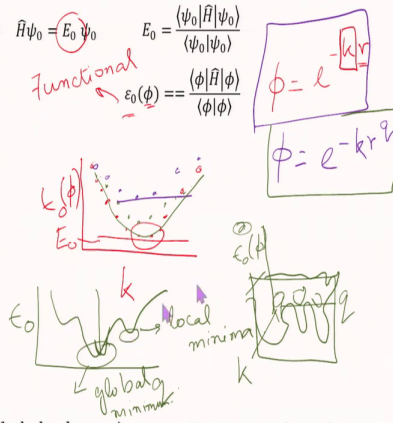 Ĥψ₀ = E₀ψ₀    E₀ = ⟨ψ₀|Ĥ|ψ₀⟩ / ⟨ψ₀|ψ₀⟩
Functional
ε₀(ϕ) == ⟨ϕ|Ĥ|ϕ⟩ / ⟨ϕ|ϕ⟩
ϕ = e^-kr
ϕ = e^-kr^q
ε₀(ϕ)
E₀
k
ε₀(ϕ)
q
k
ε₀
local
minima
q
global
minimum